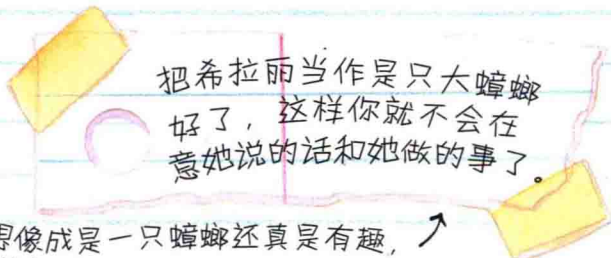 把希拉丽当作是只大蟑螂
好了，这样你就不会在
意她说的话和她做的事了。
想像成是一只蟑螂还真是有趣，